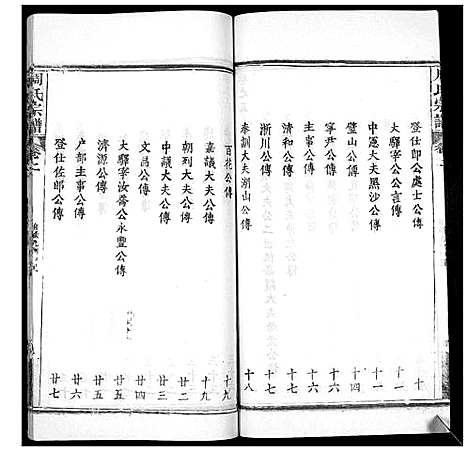 周氏宗譜
登仕郎公處士公傳 十
大驛宰公公言傳 十一
中憲大夫黑沙公傳 十一
璧山公傳 十四
寧尹公傳 十六
主事公傳 十六
清和公傳 十七
浙川公傳 十七
奉訓大夫湖山公傳 十八
百花公傳 十九
嘉議大夫公傳 十九
朝列大夫公傳 廿二
中議大夫公傳 廿三
文昌公傳 廿四
大驛宰汝喬公永豐公傳 廿五
濟源公傳 廿五
户部主事公傳 廿六
登仕佐郎公傳 廿七
周氏宗譜
卷之一